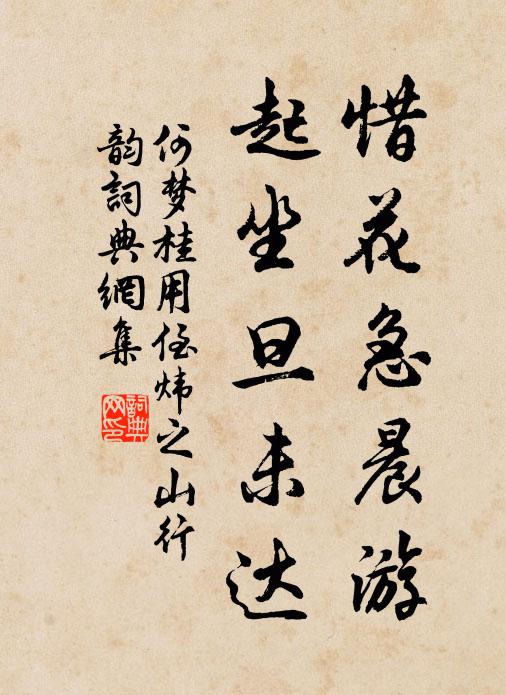 惜花急晨游
起坐旦未达
何梦桂用侄炜之山行
韵詞典網集
詞典网印